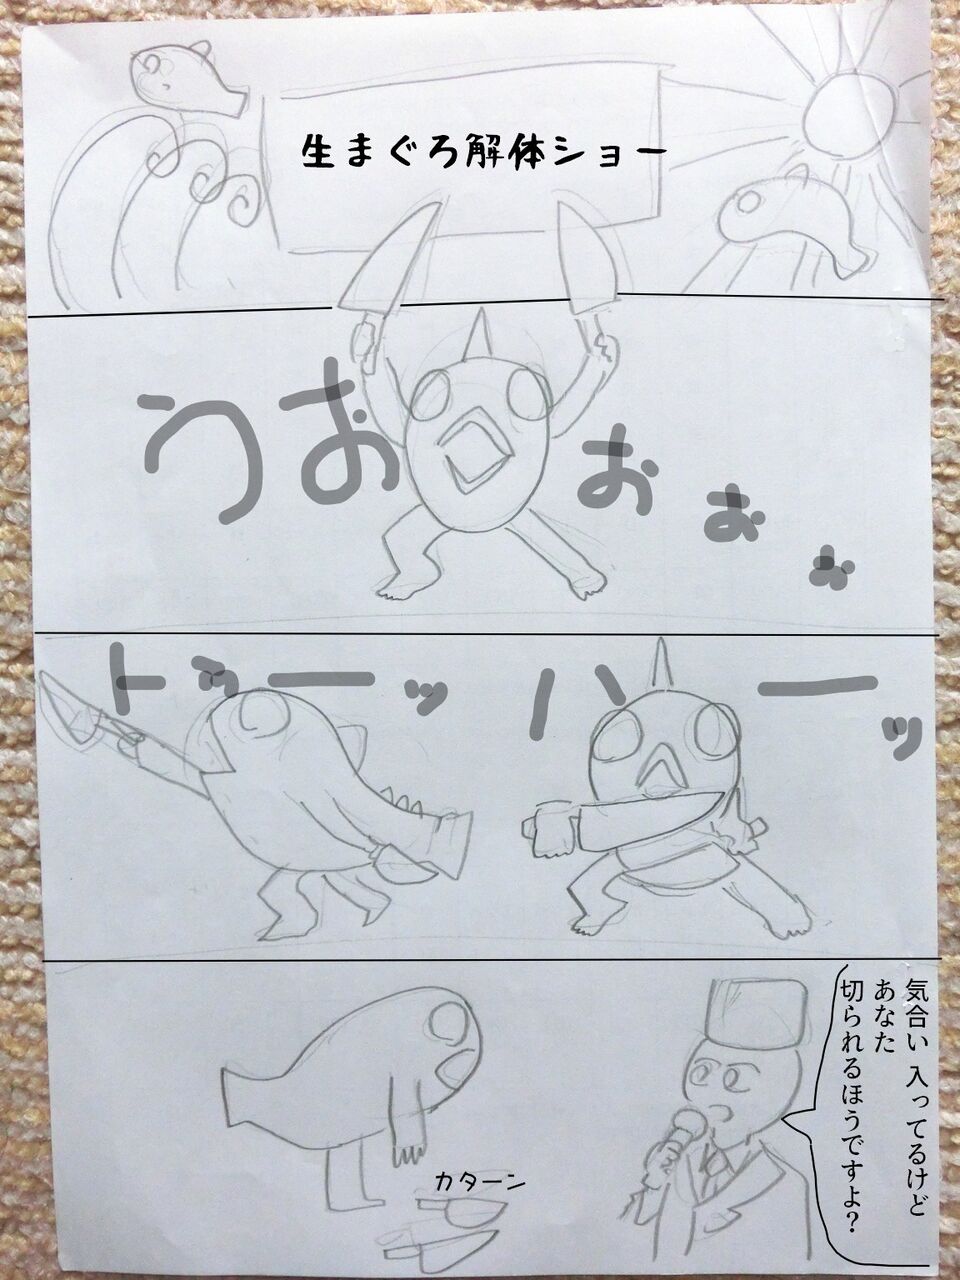 生まぐろ解体ショー
うおおぉぉ
トゥーッ ハーッ
気合い 入ってるけど
あなた
切られるほうですよ?
カターン